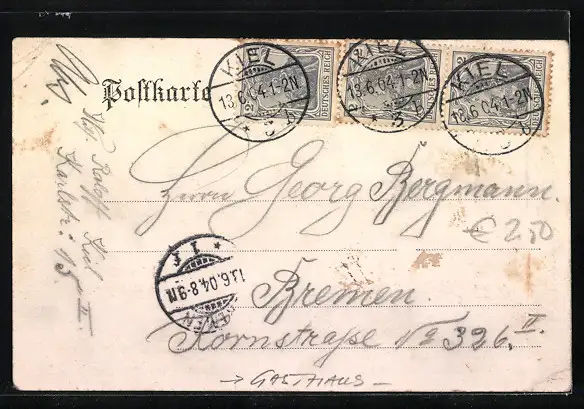 Postkarte
KIEL
13.6.04.1-2N
3
DEUTSCHES REICH
KIEL
13.6.04.1-2N
3
DEUTSCHES REICH
KIEL
13.6.04.1-2N
DEUTSCHES REICH
Herrn Georg Bergmann.
€ 2,50
Bremen.
Kornstraße No 326. II.
→ GASTHAUS
BREMEN
13.6.04.8-9N
* 1 f
Kiel
Karlstr. 15 II